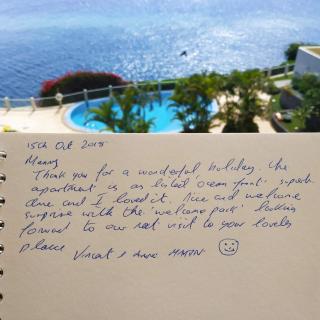 15th Oct 2018
Manny
Thank you for a wonderful holiday. The
apartment is as listed 'ocean front'. superb
Anne and I loved it. Nice and welcome
surprise with the 'welcome pack' looking
forward to our next visit to your lovely
place
Vincent & Anne